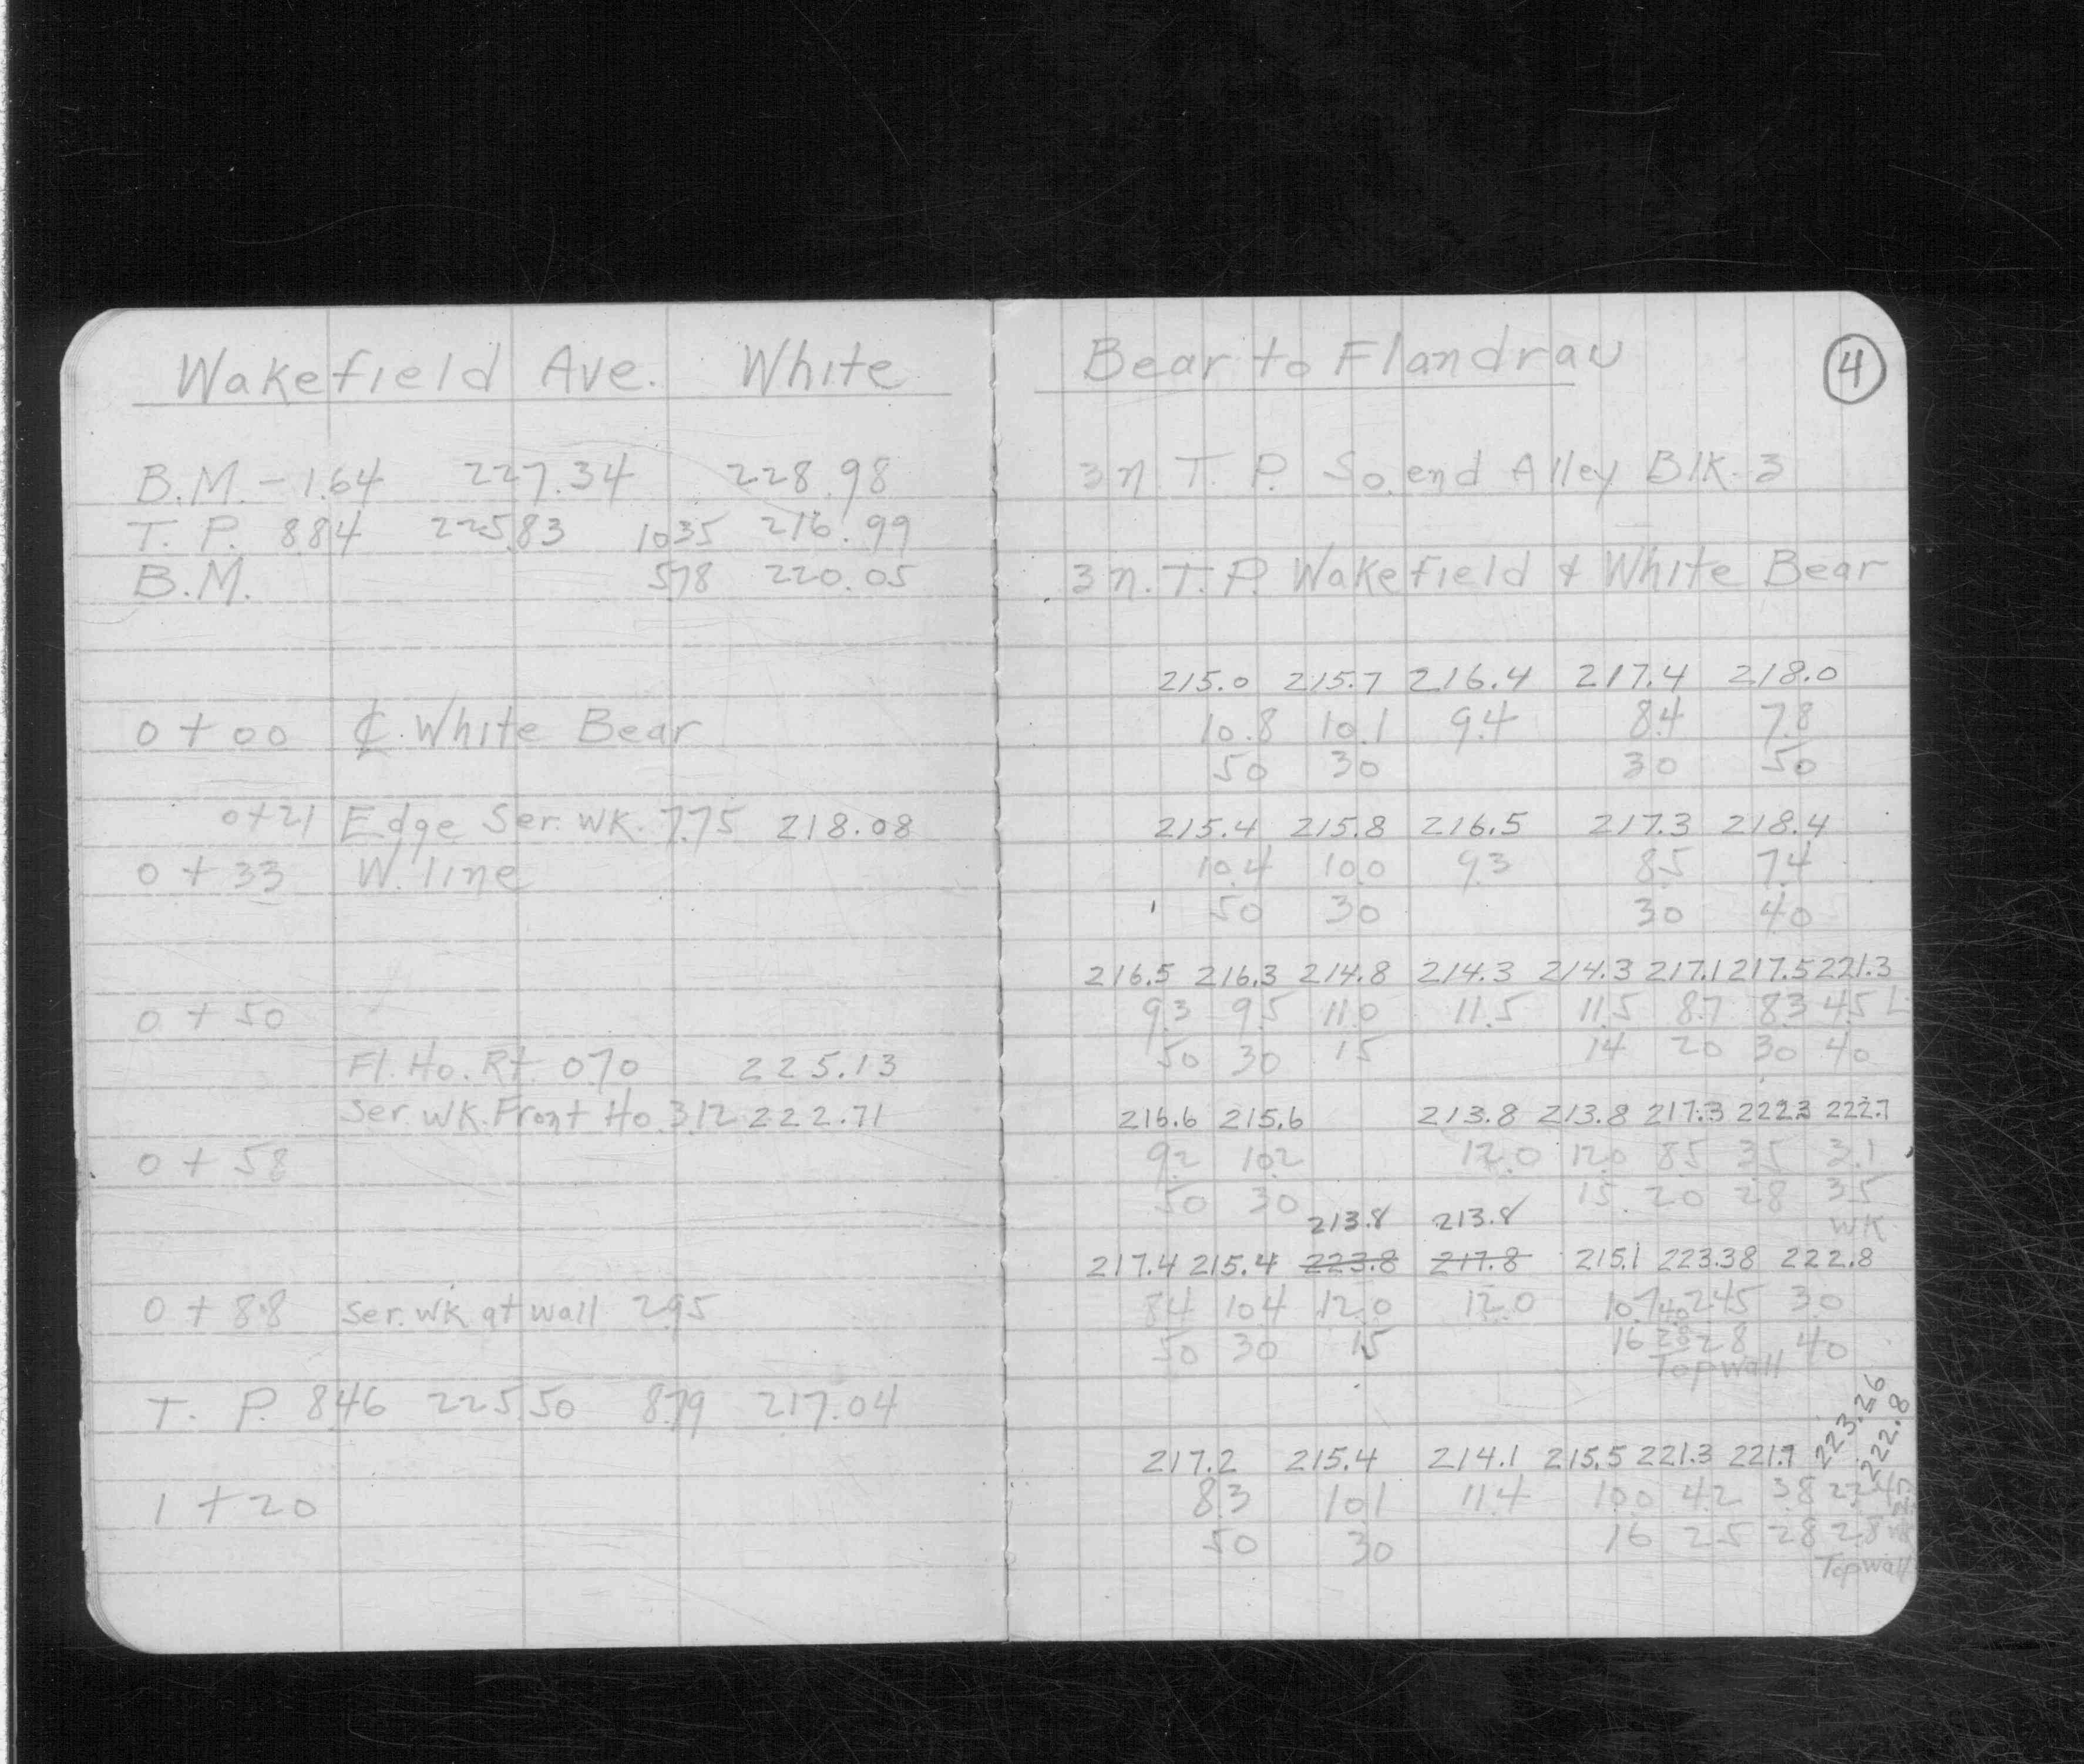 Wakefield Ave. White Bear to Flandrau 4
B.M. - 1.64 227.34 228.98 3 n T. P. So. end Alley Blk. 3
T. P. 884 225.83 1035 216.99
B.M. 578 220.05 3 n. T. P. Wakefield & White Bear
215.0 215.7 216.4 217.4 218.0
0 + 00 ℄ White Bear 10.8 10.1 9.4 8.4 7.8
50 30 30 50
0+21 Edge Ser. WK. 7.75 218.08 215.4 215.8 216.5 217.3 218.4
0 + 33 W. line 10.4 10.0 9.3 8.5 7.4
50 30 30 40
216.5 216.3 214.8 214.3 214.3 217.1 217.5 221.3
0 + 50 9.3 9.5 11.0 11.5 11.5 8.7 8.3 4.5 L
Fl. Ho. Rt. 070 225.13 50 30 15 14 20 30 40
Ser. WK. Front Ho. 3.12 222.71 216.6 215.6 213.8 213.8 217.3 222.3 222.7
0 + 58 9.2 10.2 12.0 12.0 8.5 3.5 3.1
50 30 15 20 28 35
213.8 213.8 WK.
217.4 215.4 223.8 217.8 215.1 223.38 222.8
0 + 88 Ser. WK at wall 295 8.4 10.4 12.0 12.0 10.7 4.0 245 3.0
50 30 15 16 28 28 40
Top Wall
T. P. 8.46 225.50 8.79 217.04
223.26 222.8
217.2 215.4 214.1 215.5 221.3 221.7
1 + 20 8.3 10.1 11.4 10.0 4.2 3.8
50 30 16 25 28 28
Top Wall